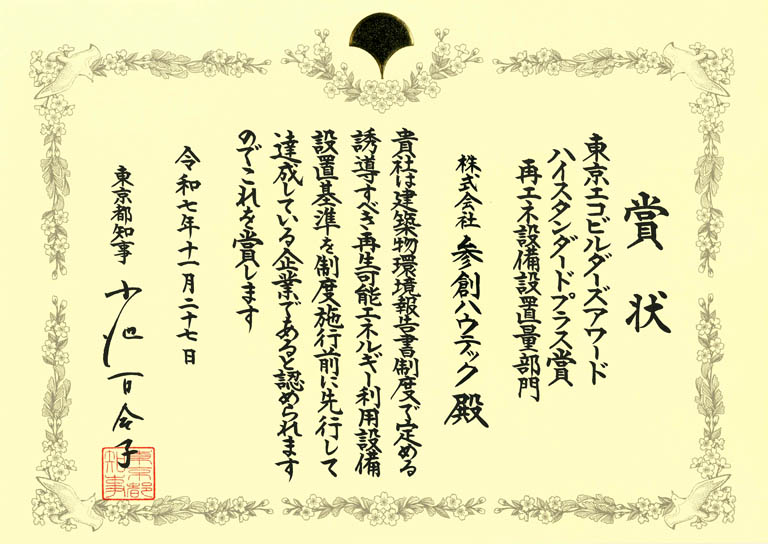 賞状
東京エコビルダーズアワード
ハイスタンダードプラス賞
再エネ設備設置量部門
株式会社 参創ハウテック 殿
貴社は建築物環境報告書制度で定める
誘導すべき再生可能エネルギー利用設備
設置基準を制度施行前に先行して
達成している企業であると認められます
のでこれを賞します
令和七年十一月二十七日
東京都知事 小池百合子
東京都
知事